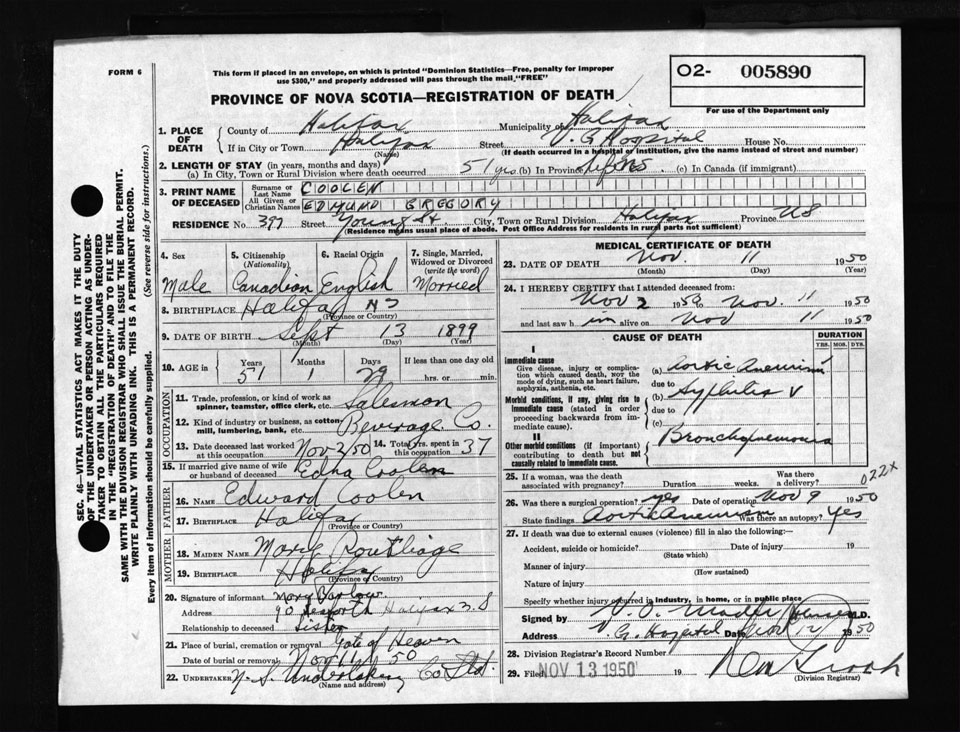 FORM 6
This form if placed in an envelope, on which is printed "Dominion Statistics—Free, penalty for improper
use $300," and properly addressed will pass through the mail, "FREE"
O2- 005890
For use of the Department only
PROVINCE OF NOVA SCOTIA—REGISTRATION OF DEATH
1. PLACE OF DEATH
County of Halifax Municipality of Halifax
If in City or Town Halifax Street V. G Hospital House No.
(Name) (If death occurred in a hospital or institution, give the name instead of street and number)
2. LENGTH OF STAY (in years, months and days)
(a) In City, Town or Rural Division where death occurred 51 yrs (b) In Province (c) In Canada (if immigrant)
3. PRINT NAME OF DECEASED
Surname or Last Name COOLEN
All Given or Christian Names EDMUND GREGORY
RESIDENCE No. 397 Street Young St City, Town or Rural Division Halifax Province NS
(Residence means usual place of abode. Post Office Address for residents in rural parts not sufficient)
4. Sex 5. Citizenship (Nationality) 6. Racial Origin 7. Single, Married, Widowed or Divorced (write the word)
Male Canadian English Married
8. BIRTHPLACE Halifax NS
(Province or Country)
9. DATE OF BIRTH Sept 13 1899
(Month) (Day) (Year)
10. AGE in Years Months Days If less than one day old
51 1 29 hrs. or min.
OCCUPATION
11. Trade, profession, or kind of work as spinner, teamster, office clerk, etc. Salesman
12. Kind of industry or business, as cotton mill, lumbering, bank, etc. Beverage Co.
13. Date deceased last worked at this occupation Nov 2/50 14. Total yrs. spent in this occupation 37
15. If married give name of wife or husband of deceased Edna Coolen
FATHER
16. NAME Edward Coolen
17. BIRTHPLACE Halifax
(Province or Country)
MOTHER
18. MAIDEN NAME Mary
19. BIRTHPLACE Halifax
(Province or Country)
20. Signature of informant Mary Barlow
Address 90 Seaforth Halifax N.S
Relationship to deceased Sister
21. Place of burial, cremation or removal Gate of Heaven
Date of burial or removal Nov 50
22. UNDERTAKER N. S. Undertaking Co Ltd.
(Name and address)
MEDICAL CERTIFICATE OF DEATH
23. DATE OF DEATH Nov. 11 1950
(Month) (Day) (Year)
24. I HEREBY CERTIFY that I attended deceased from:
Nov 2 1950 to Nov. 11 1950
and last saw h im alive on Nov 11 1950
CAUSE OF DEATH DURATION
YRS. MOS. DYS.
I
Immediate cause
Give disease, injury or complication which caused death, NOT the mode of dying, such as heart failure, asphyxia, asthenia, etc.
(a) Aortic Aneurism
due to
Morbid conditions, if any, giving rise to immediate cause (stated in order proceeding backwards from immediate cause).
(b) Syphilis
due to
(c)
II
Other morbid conditions (if important) contributing to death but not causally related to immediate cause.
Bronchopneumonia
25. If a woman, was the death associated with pregnancy? Duration weeks. Was there a delivery?
022X
26. Was there a surgical operation? yes Date of operation Nov 9 1950
State findings Aortic Aneurism Was there an autopsy? Yes
27. If death was due to external causes (violence) fill in also the following:
Accident, suicide or homicide? Date of injury 19
(State which)
Manner of injury
(How sustained)
Nature of injury
Specify whether injury occurred in industry, in home, or in public place
Signed by M.D.
Address V. G. Hospital Date Nov 12 1950
28. Division Registrar's Record Number
29. Filed NOV 13 1950 19
(Division Registrar)
SEC. 46—VITAL STATISTICS ACT MAKES IT THE DUTY
OF THE UNDERTAKER OR PERSON ACTING AS UNDERTAKER TO OBTAIN ALL THE PARTICULARS REQUIRED
IN THE "REGISTRATION OF DEATH" AND TO FILE THE
SAME WITH THE DIVISION REGISTRAR WHO SHALL ISSUE THE BURIAL PERMIT.
WRITE PLAINLY WITH UNFADING INK. THIS IS A PERMANENT RECORD.
Every item of information should be carefully supplied. (See reverse side for instructions.)